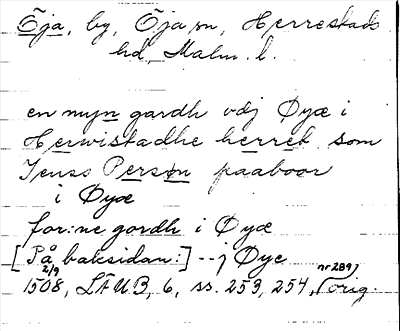 Öja, by, Öja sn, Herrestads
hd, Malm. l.
en myn gardh vdj Øyæ i
Herwistadhe herret som
Jenss Persøn paaboor
i Øyæ
for:ne gordh i Øyæ
[På baksidan:] --j Øye
1508, 2/9 LÄUB, 6, ss. 253, 254, (nr 289) orig.